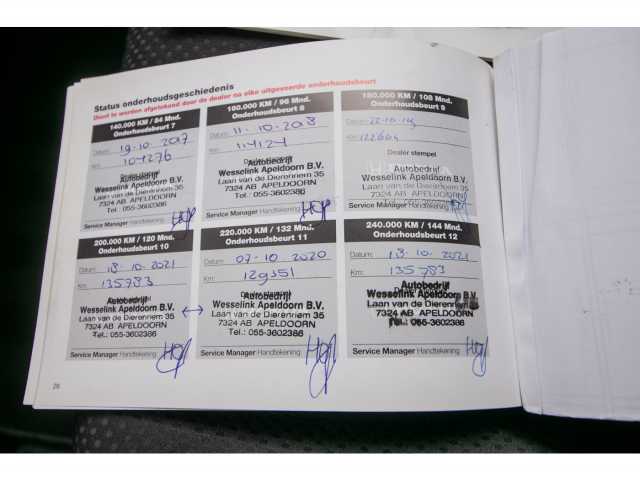 Status onderhoudsgeschiedenis
Dient te worden afgetekend door de dealer na elke uitgevoerde onderhoudsbeurt
140.000 KM / 84 Mnd.
Onderhoudsbeurt 7
Datum: 19-10-2017
Km: 104276
Autobedrijf
Wesselink Apeldoorn B.V.
Laan van de Dierenriem 35
7324 AB APELDOORN
Tel.: 055-3602386
Service Manager Handtekening
160.000 KM / 96 Mnd.
Onderhoudsbeurt 8
Datum: 11-10-2018
Km: 114124
Autobedrijf
Wesselink Apeldoorn B.V.
Laan van de Dierenriem 35
7324 AB APELDOORN
Tel.: 055-3602386
Service Manager Handtekening
180.000 KM / 108 Mnd.
Onderhoudsbeurt 9
Datum: 22-10-19
Km: 122604
Dealer stempel
Autobedrijf
Wesselink Apeldoorn B.V.
Laan van de Dierenriem 35
7324 AB APELDOORN
Tel.: 055-3602386
Service Manager Handtekening
200.000 KM / 120 Mnd.
Onderhoudsbeurt 10
Datum: 18-10-2021
Km: 135783
Autobedrijf
Wesselink Apeldoorn B.V.
Laan van de Dierenriem 35
7324 AB APELDOORN
Tel.: 055-3602386
Service Manager Handtekening
220.000 KM / 132 Mnd.
Onderhoudsbeurt 11
Datum: 07-10-2020
Km: 129351
Autobedrijf
Wesselink Apeldoorn B.V.
Laan van de Dierenriem 35
7324 AB APELDOORN
Tel.: 055-3602386
Service Manager Handtekening
240.000 KM / 144 Mnd.
Onderhoudsbeurt 12
Datum: 18-10-2021
Km: 135783
Autobedrijf
Wesselink Apeldoorn B.V.
Laan van de Dierenriem 35
7324 AB APELDOORN
Tel.: 055-3602386
Service Manager Handtekening
26